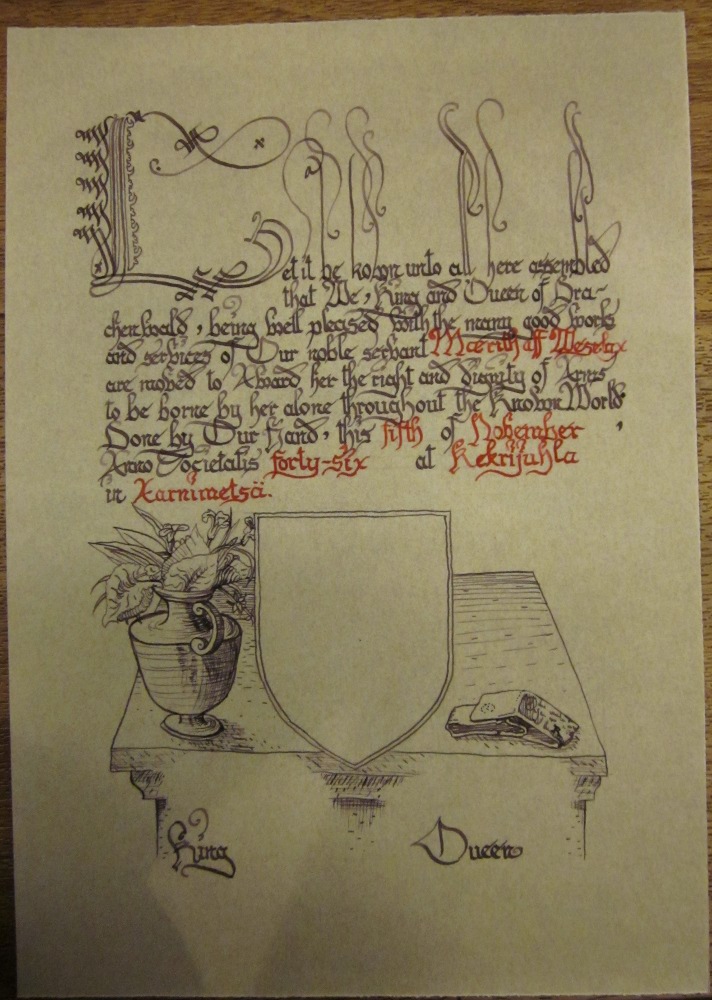 Let it be known unto all here assembled
that We, King and Queen of Dra-
chenwald, being well pleased with the many good works
and services of Our noble servant Maerith aff Westrax
are moved to Award her the right and dignity of Arms
to be borne by her alone throughout the Known World.
Done by Our Hand, this fifth of November,
Anno Societatis forty-six at Kekrijuhla
in Karnimetsä.
King Queen